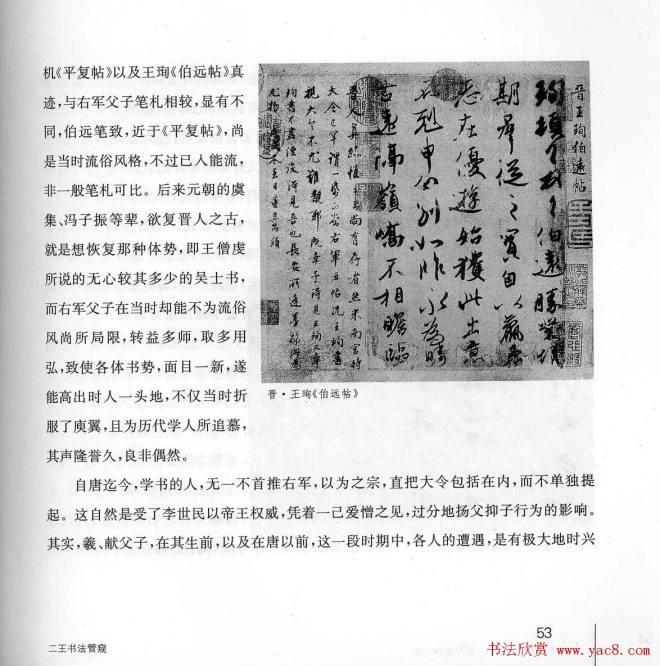 机《平复帖》以及王珣《伯远帖》真
迹,与右军父子笔札相较,显有不
同,伯远笔致,近于《平复帖》,尚
是当时流俗风格,不过已人能流,
非一般笔札可比。后来元朝的虞
集、冯子振等辈,欲复晋人之古,
就是想恢复那种体势,即王僧虔
所说的无心较其多少的吴士书,
而右军父子在当时却能不为流俗
风尚所局限,转益多师,取多用
弘,致使各体书势,面目一新,遂
能高出时人一头地,不仅当时折
服了庾翼,且为历代学人所追慕,
其声隆誉久,良非偶然。
晋王珣伯远帖
珣顿首顿首伯远胜业情
期群从之宝自以羸患
志在优游始获此出意
不剋申分别如昨永为畴
古远隔岭峤不相瞻临
晋·王珣《伯远帖》
自唐迄今,学书的人,无一不首推右军,以为之宗,直把大令包括在内,而不单独提
起。这自然是受了李世民以帝王权威,凭着一己爱憎之见,过分地扬父抑子行为的影响。
其实,羲、献父子,在其生前,以及在唐以前,这一段时期中,各人的遭遇,是有极大地时兴
53
二王书法管窥
书法欣赏 www.yac8.com